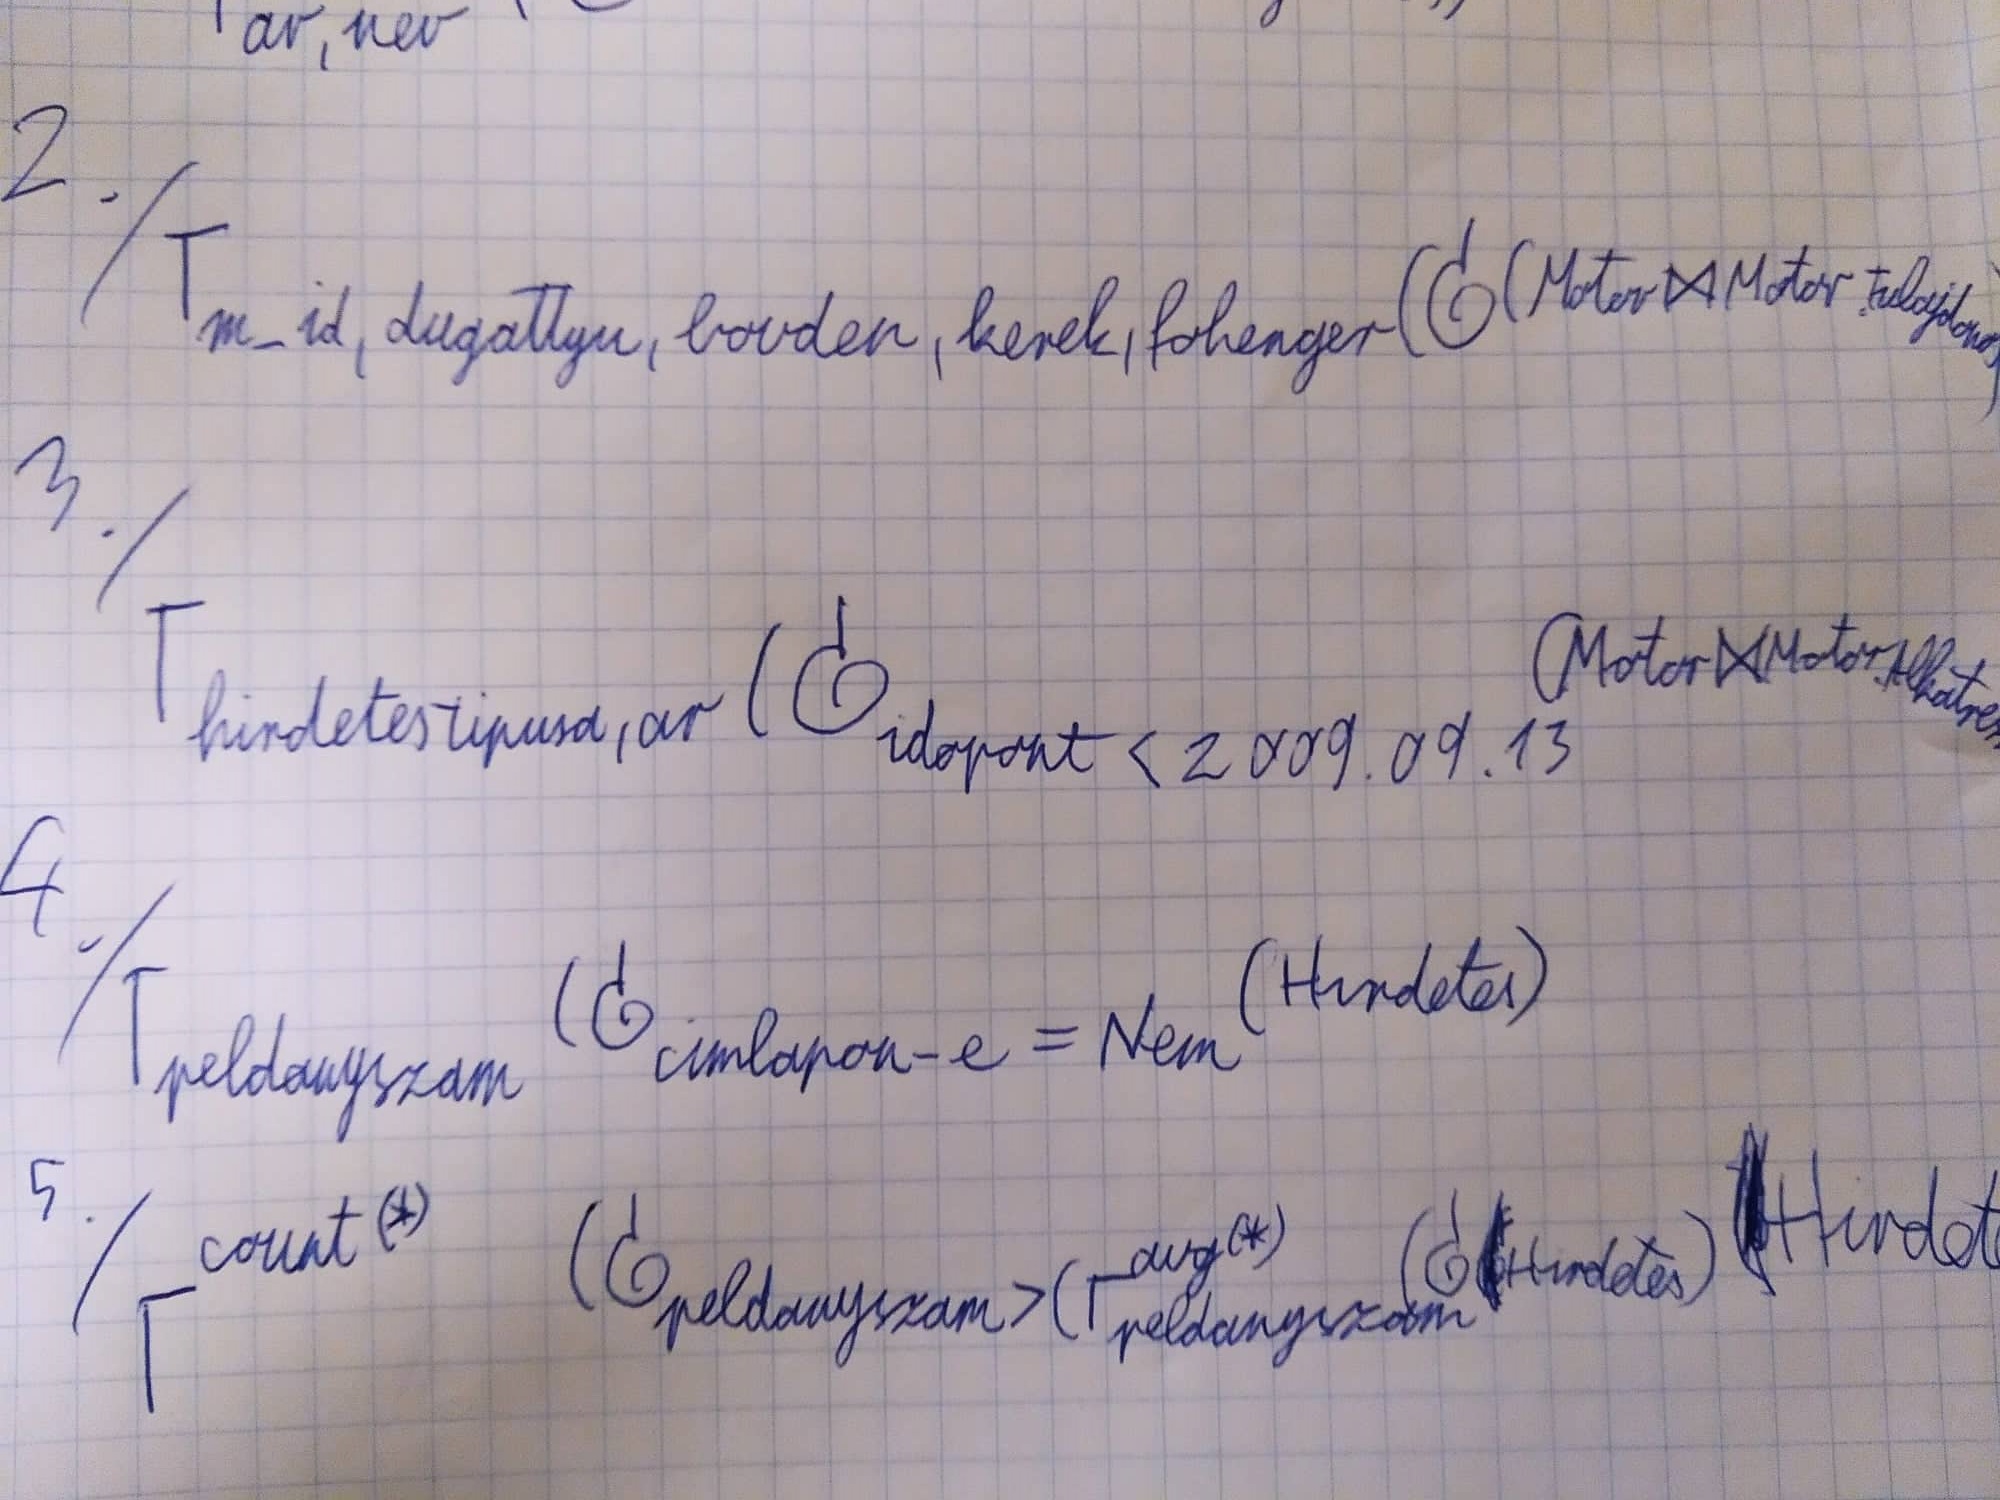 Γ ar, nev (
2./
Γ m_id, dugattyu, bovden, kerek, fohenger (σ (Motor⋈Motor.tulajdonos)
3./
Γ hirdetestipusa, ar (σ idopont < 2009.09.13 (Motor⋈Motor.Alkatres
4./
Γ peldanyszam (σ cimlapon-e = Nem (Hirdetes)
5./
Γ count(*) (σ peldanyszam > (Γ avg(*) peldanyszam (σ (Hirdetes) (Hirdet